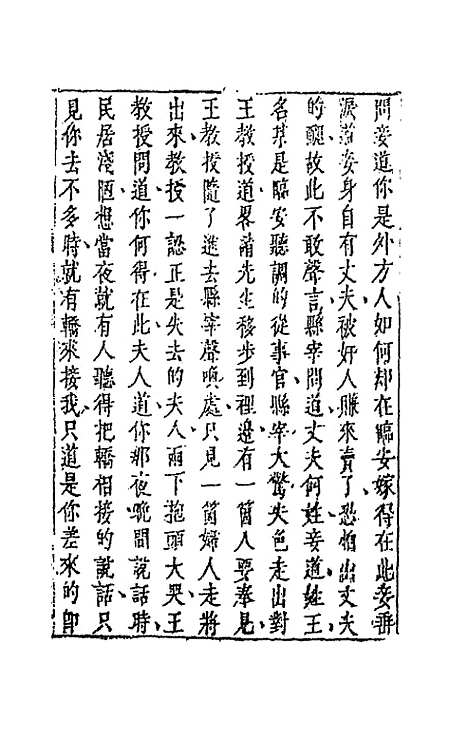 問妾道你是外方人如何却在臨安嫁得在此妾垂
淚道妾身自有丈夫被奸人賺來賣了恐怕出丈夫
的醜故此不敢聲言縣宰問道丈夫何姓妾道姓王
名某是臨安聽調的從事官縣宰大驚失色走出對
王教授道畧請先生移步到裡邉有一箇人要奉見
王教授隨了進去縣宰聲喚處只見一箇婦人走將
出來教授一認正是失去的夫人兩下抱頭大哭王
教授問道你何得在此夫人道你那夜晚間說話時
民居淺陋想當夜就有人聽得把轎相接的說話只
見你去不多時就有轎來接我只道是你差來的卽